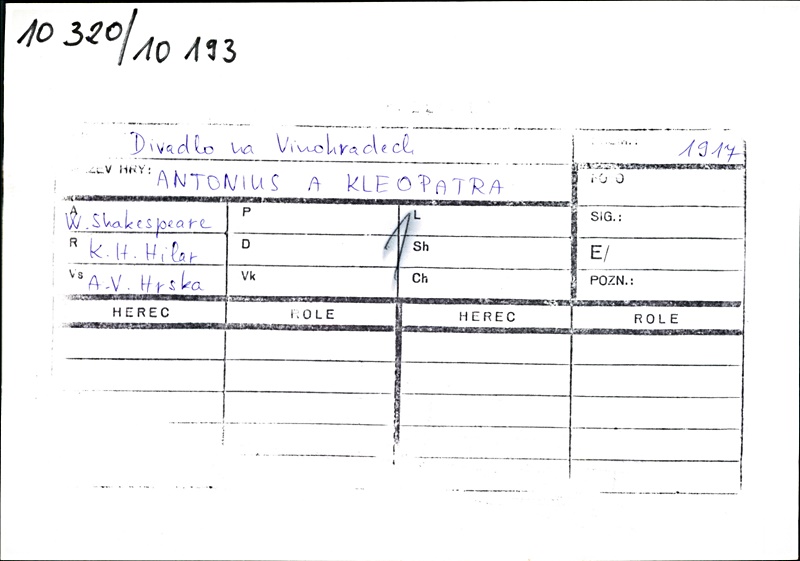 10 320/10 193
Divadlo na Vinohradech
1917
HRY: ANTONIUS A KLEOPATRA
A W. Shakespeare
P
L
SIG.:
R K. H. Hilar
D
Sh
E/
Vs A.V. Hrska
Vk
Ch
POZN.:
HEREC ROLE HEREC ROLE